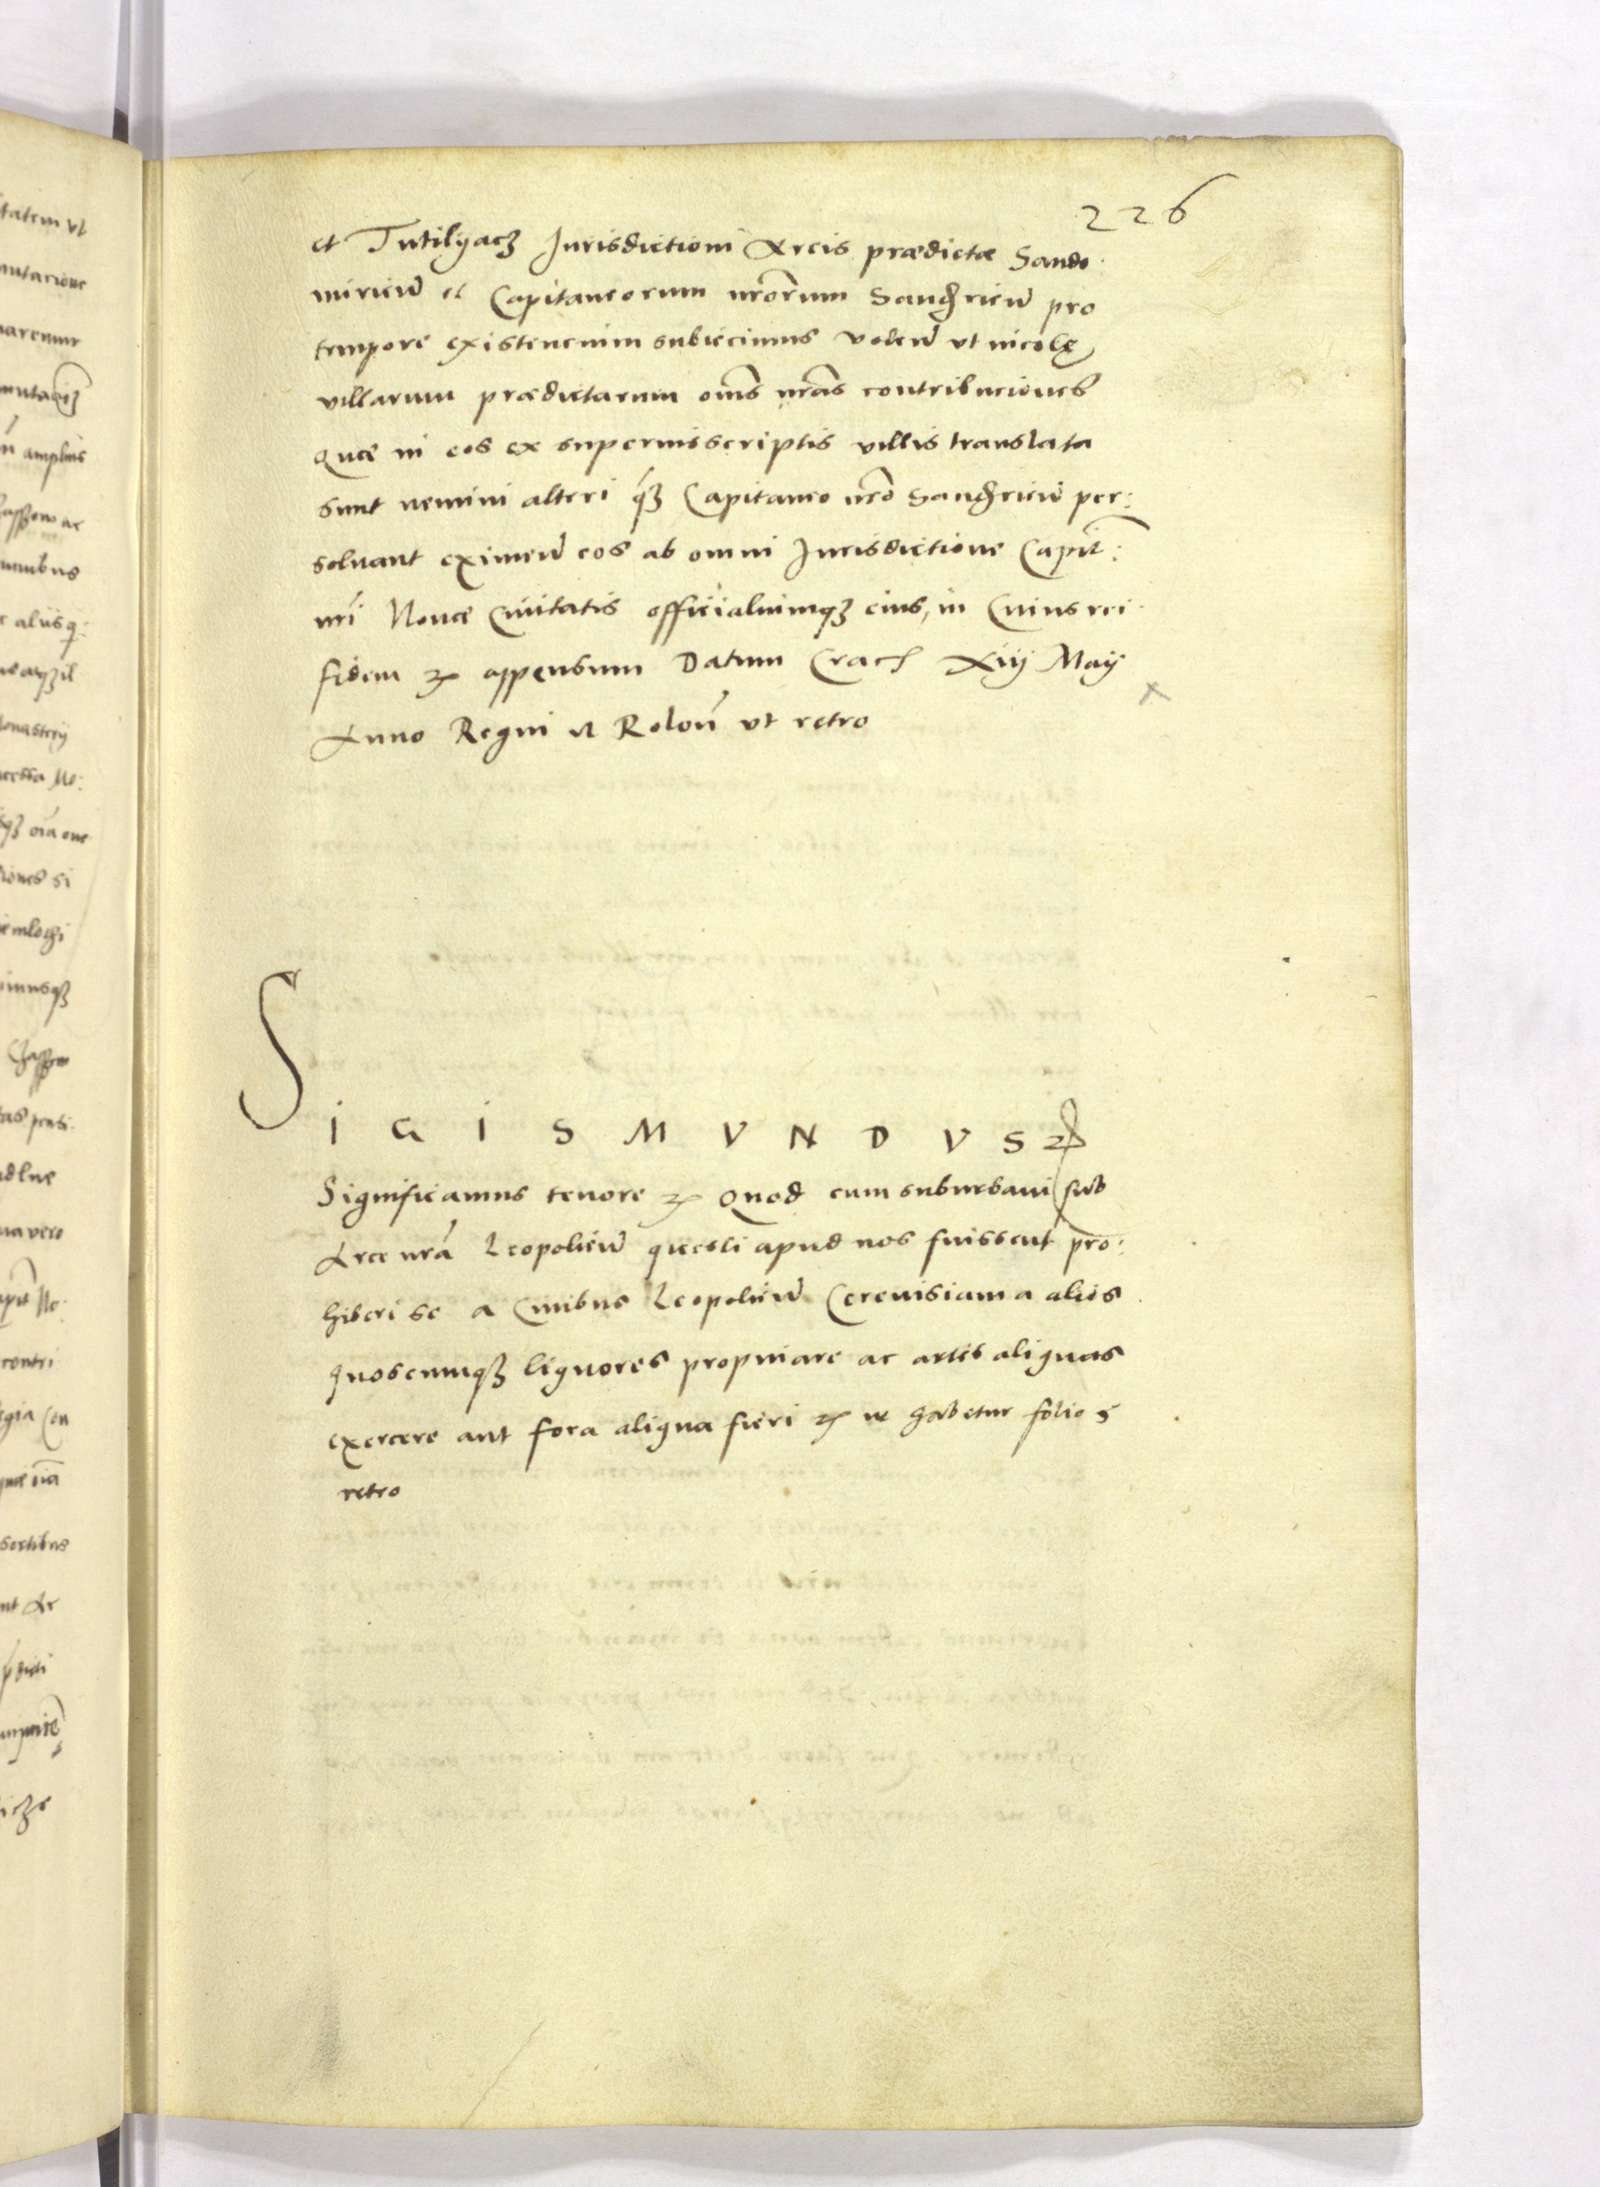 226
et Tutilyacz Jurisdictioni Arcis prædictæ Sando
mirien̄ et Capitaneorum nr̄orum Sandrien̄ pro
tempore existencium subiecimus volen̄ ut incolę
villarum prædictarum om̄s nr̄as contribuciones
Quæ in eos ex superius scriptis villis translata
sunt nemini alteri q́ȝ Capitaneo nr̄o Sandrien̄ per:
soluant eximen̄ eos ab omni Jurisdictione Capit̄:
nr̄i Nouæ Ciuitatis officialiumqȝ eius, in Cuius rei
fidem ꝛc appensum Datum Crac̄ xiij Maij
Anno Regni et Rolon̄ ut retro
SIGISMVNDVS ꝛc
Significamus tenore ꝛc Quod cum suburbani sub
Arce nr̄a Leopolien̄ questi apud nos fuissent pro:
hiberi se a Ciuibus Leopolien̄ Cereuisiam a alios
quoscumqȝ liquores propinare ac artes aliquas
exercere aut fora aliqua fieri ꝛc ut habetur folio 5
retro